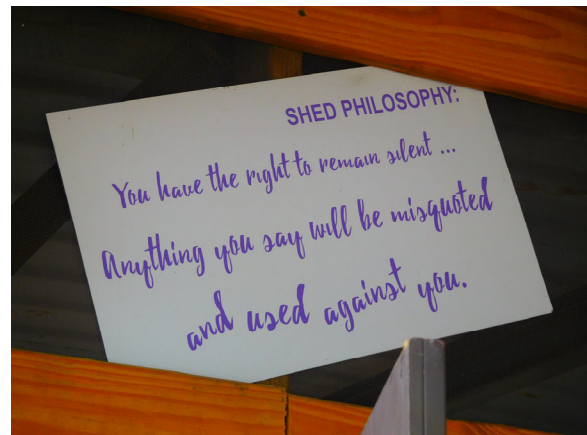 SHED PHILOSOPHY:
You have the right to remain silent ...
Anything you say will be misquoted
and used against you.